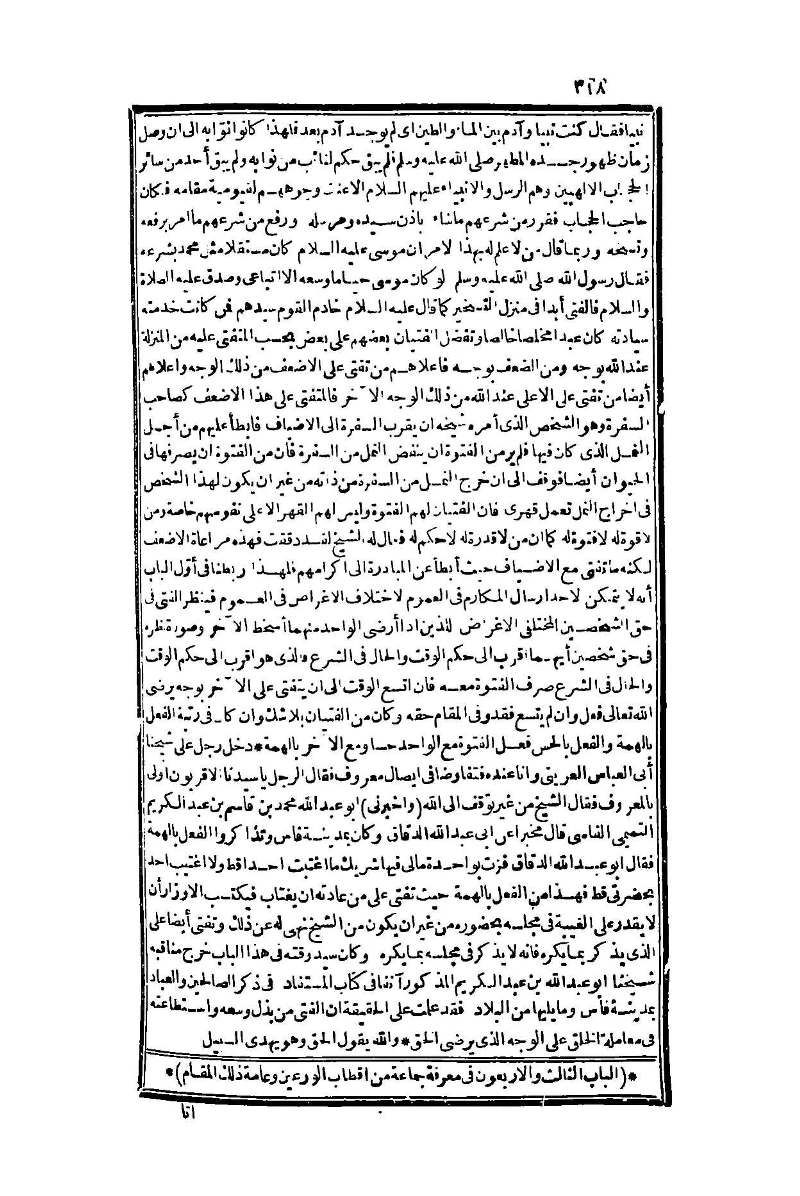 ٣١٨
نبيا فقال كنت نبيا وآدم بين الماء والطين اى لم يوجد آدم بعد فلهذا كانوا نوابه الى ان وصل
زمان ظهور جسده المطهر صلى الله عليه وسلم فلم يبق حكم لنائب من نوابه ولم يبق أحد من سائر
الحجاب الالهيين وهم الرسل والانبياء عليهم السلام الاعنت وجوههم لقيومية مقامه فكان
حاجب الحجاب فقرر من شرعهم ما شاء باذن سيده ومرسله ورفع من شرعهم ما امر برفعه
ونسخه وربما قال من لا علم له بهذا الامر ان موسى عليه السلام كان مستقلا مثل محمد بشرعه
فقال رسول الله صلى الله عليه وسلم لو كان موسى حيا ما وسعه الا اتباعى وصدق عليه الصلاة
والسلام فالفتى أبدا فى منزل التسخير كما قال عليه السلام خادم القوم سيدهم فمن كانت خدمته
سيادته كان عبدا مخلصا خالصا وتفضل الفتيان بعضهم على بعض بحسب المتفتى عليه من المنزلة
عند الله بوجه ومن الضعف بوجه فاعلاهم من تفتى على الاضعف من ذلك الوجه واعلاهم
أيضا من تفتى على الاعلى عند الله من ذلك الوجه الآخر فالمتفتى على هذا الاضعف كصاحب
السفرة وهو الشخص الذى أمره شيخه ان يقرب السفرة الى الاضياف فابطأ عليهم من أجل
النمل الذى كان فيها فلم ير من الفتوة ان ينفض النمل من السفرة فان من الفتوة ان يصرفها فى
الحيوان أيضا فوقف الى ان خرج النمل من السفرة من ذاته من غير ان يكون لهذا الشخص
فى اخراج النمل تعمل قهرى فان الفتيان لهم الفتوة وليس لهم القهر الا على نفوسهم خاصة ومن
لا قوة له لا فتوة له كما ان من لا قدرة له لا حكم له فقال له الشيخ لقد دققت فهذه مراعاة الاضعف
لكنه ما تفتى مع الاضياف حيث أبطأ عن المبادرة الى اكرامهم فلهذا ربطنا فى أول الباب
أنه لا يتمكن لاحد ارسال المكارم فى العموم لاختلاف الاغراض فى العموم فينظر الفتى فى
حق الشخصين المختلفى الاغراض للذين اذا أرضى الواحد منهما أسخط الآخر وصورة نظره
فى حق شخصين أيهما اقرب الى حكم الوقت والحال فى الشرع فالذى هو اقرب الى حكم الوقت
والحال فى الشرع صرف الفتوة معه فان اتسع الوقت الى ان يتفتى على الآخر بوجه يرضى
الله تعالى فعل وان لم يتسع فقد وفى المقام حقه وكان من الفتيان بلا شك وان كان فى رتبة الفعل
بالهمة والفعل بالحس فعل الفتوة مع الواحد حسا ومع الآخر بالهمة * دخل رجل على شيخنا
أبى العباس العريبى وانا عنده فتفاوضا فى ايصال معروف فقال الرجل يا سيدنا الاقربون اولى
بالمعروف فقال الشيخ من غير توقف الى الله (واخبرنى) ابو عبد الله محمد بن قاسم بن عبد الكريم
التميمى الفاسى قال مخبرا عن ابى عبد الله الدقاق وكان بمدينة فاس وتذاكروا الفعل بالهمة
فقال ابو عبد الله الدقاق فزت بواحدة مالى فيها شريك ما اغتبت احدا قط ولا اغتيب احد
بحضرتى قط فهذا من الفعل بالهمة حيث تفتى على من عادته ان يغتاب فيكتسب الاوزار أن
لا يقدر على الغيبة فى مجلسه بحضوره من غير ان يكون من الشيخ نهى له عن ذلك وتفتى أيضا على
الذى يذكر بما يكره فانه لا يذكر فى مجلسه بما يكره وكان سيد وقته فى هذا الباب خرج مناقبه
شيخنا ابو عبد الله بن عبد الكريم المذكور آنفا فى كتاب المستفاد فى ذكر الصالحين والعباد
بمدينة فاس وما يليها من البلاد فقد علمت على الحقيقة ان الفتى من بذل وسعه واستطاعته
فى معاملة الخلق على الوجه الذى يرضى الحق * والله يقول الحق وهو يهدى السبيل
* (الباب الثالث والاربعون فى معرفة جماعة من اقطاب الورعين وعامة ذلك المقام) *
انا